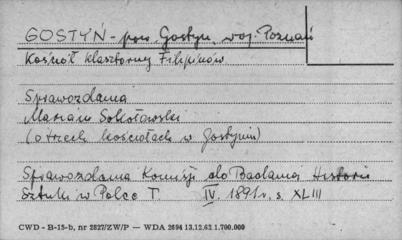 GOSTYŃ - pow. Gostyń, woj. Poznań
Kościół klasztorny Filipinów
Sprawozdania
Marian Sokołowski
(o trzech kościołach w Gostyniu)
Sprawozdania Komisji do Badania Historii
Sztuki w Polsce T. IV. 1891 r. s. XLIII
CWD - B-15-b, nr 2827/ZW/P — WDA 2694 13.12.62 1.700.000